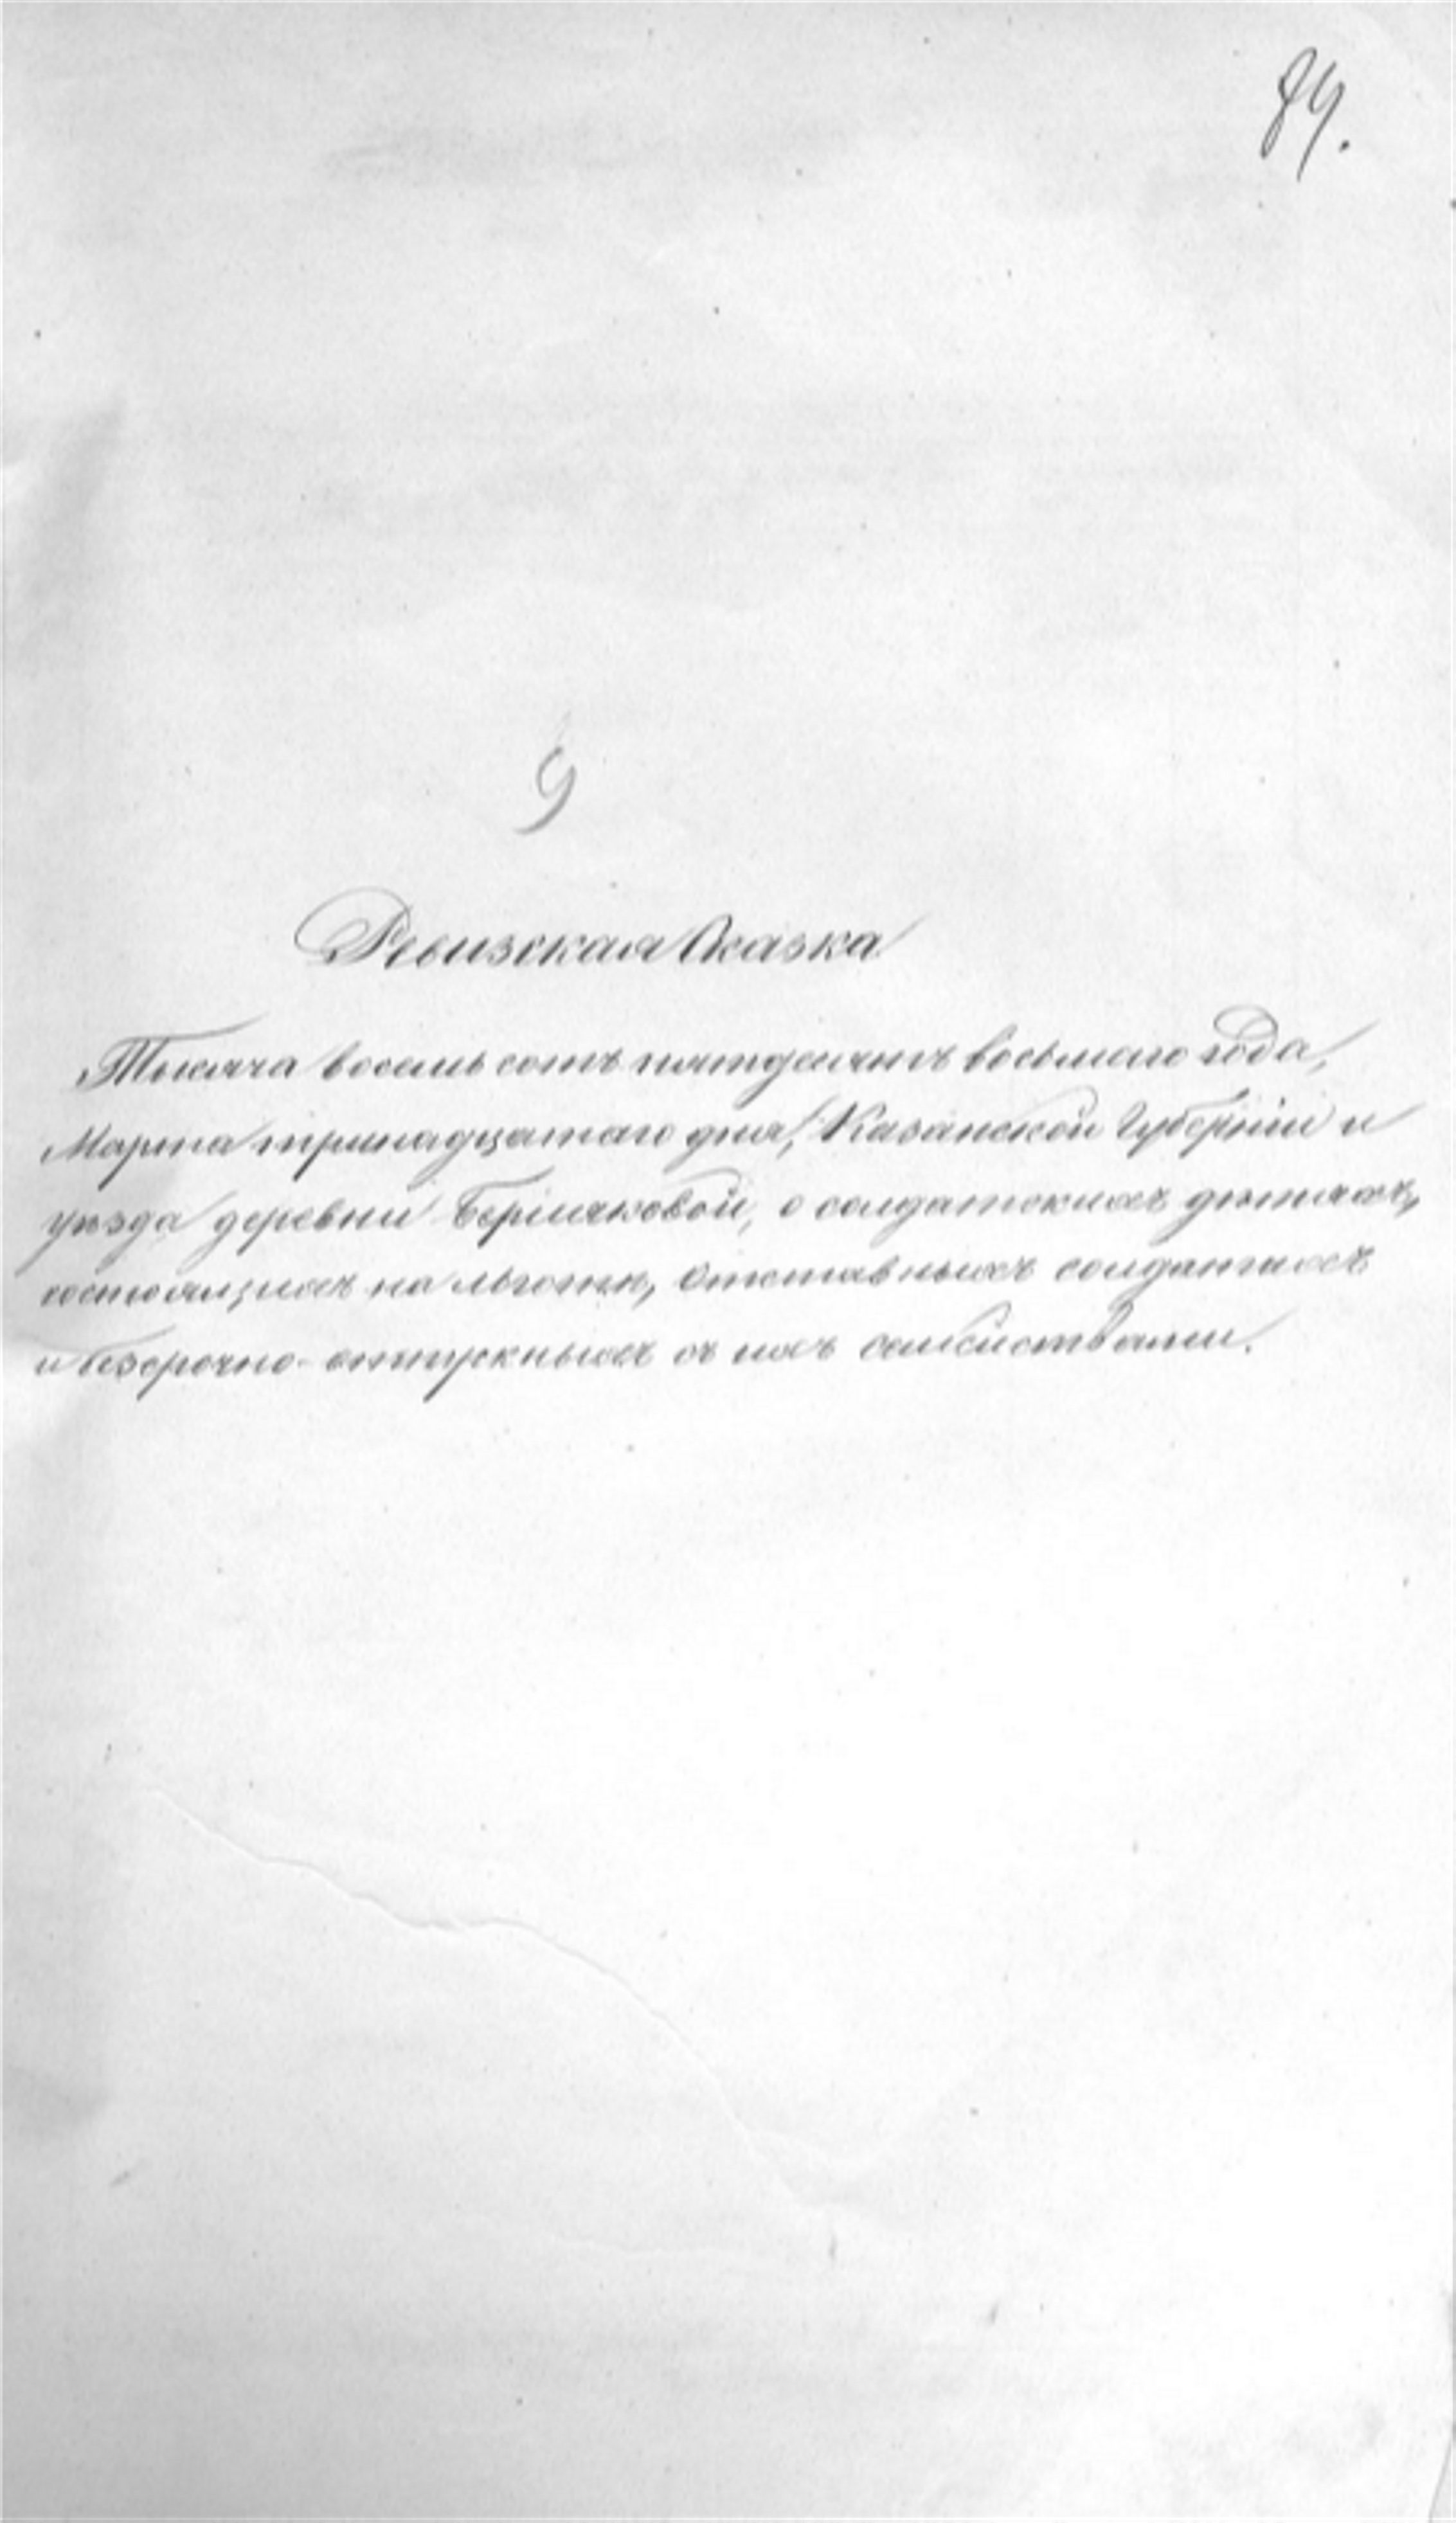 84.
9
Ревизская Сказка
Тысяча восемь сотъ пятдесятъ восьмаго года,
Марта тринадцатаго дня, Казанской Губерніи и
уѣзда деревни о солдатскихъ дѣтяхъ,
состоящихъ на льготѣ, отставныхъ солдатахъ
и безсрочно-отпускныхъ съ ихъ семействами.